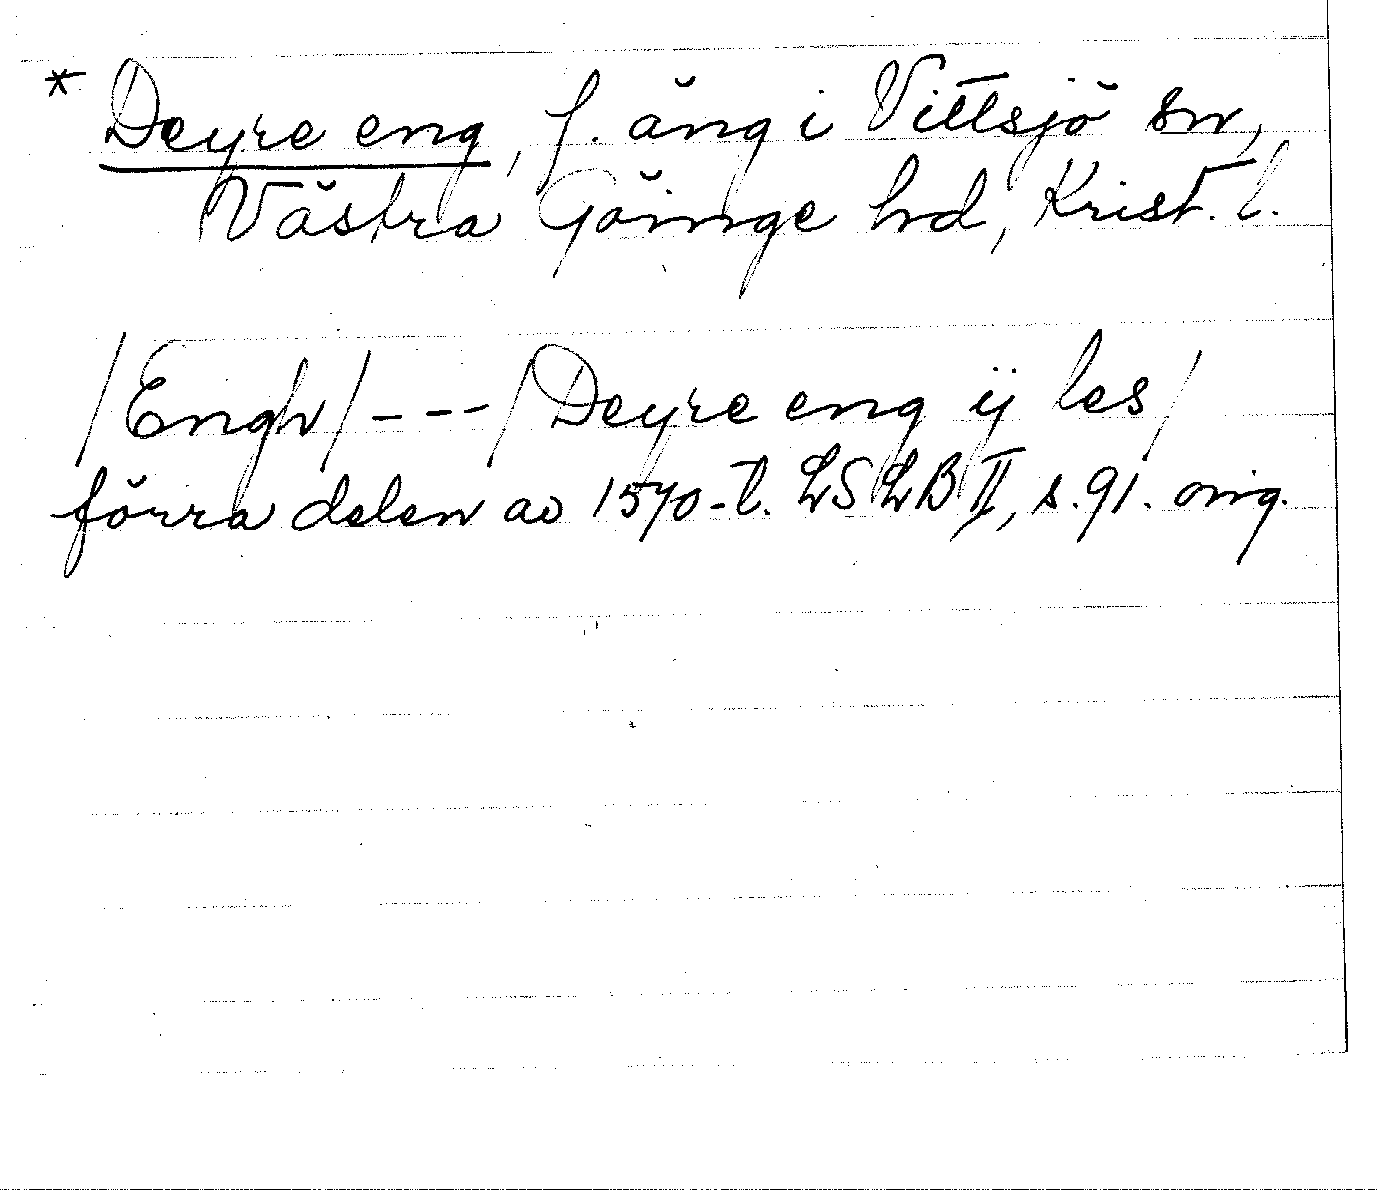 * Deyre eng, f. äng i Vittsjö sn,
Västra Göinge hd, Krist. l.
/Engh/ - - - / Deyre eng ij les/
förra delen av 1570-t. LSLB II, s. 91. orig.